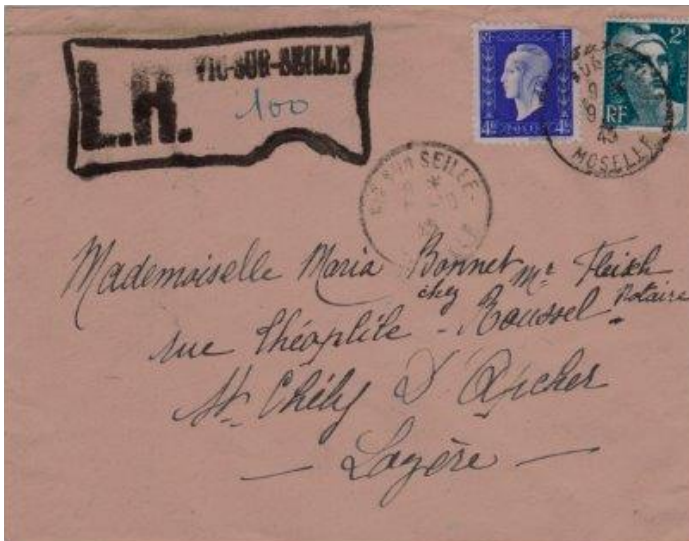 VIC-SUR-SEILLE
L.R.
100
4F 4F
POSTES
2F
RF
SUR SEILLE
MOSELLE
VIC SUR SEILLE
Mademoiselle Maria Bonnet
chez Mr Fleisch Notaire
rue Théophile - Roussel
St. Chély D'Apcher
— Lozère —